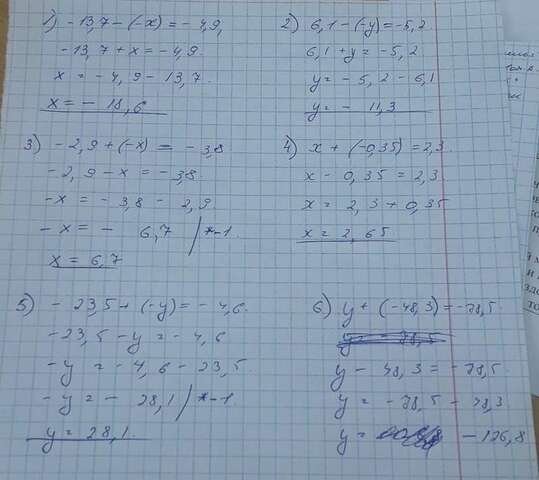 1) -13,7-(-x)=-4,9,
-13,7+x=-4,9.
x=-4,9-13,7.
x=-18,6
2) 6,1-(-y)=-5,2.
6,1+y=-5,2
y=-5,2-6,1
y=-11,3
3) -2,9+(-x)=-3,8
-2,9-x=-3,8.
-x=-3,8-2,9
-x=-6,7/*-1
x=6,7
4) x+(-0,35)=2,3.
x-0,35=2,3
x=2,3+0,35
x=2,65
5) -23,5+(-y)=-4,6.
-23,5-y=-4,6
-y=-4,6-23,5
-y=-28,1/*-1.
y=28,1.
6) y+(-48,3)=-78,5.
y-48,3=-78,5.
y=-78,5-48,3
y= -126,8